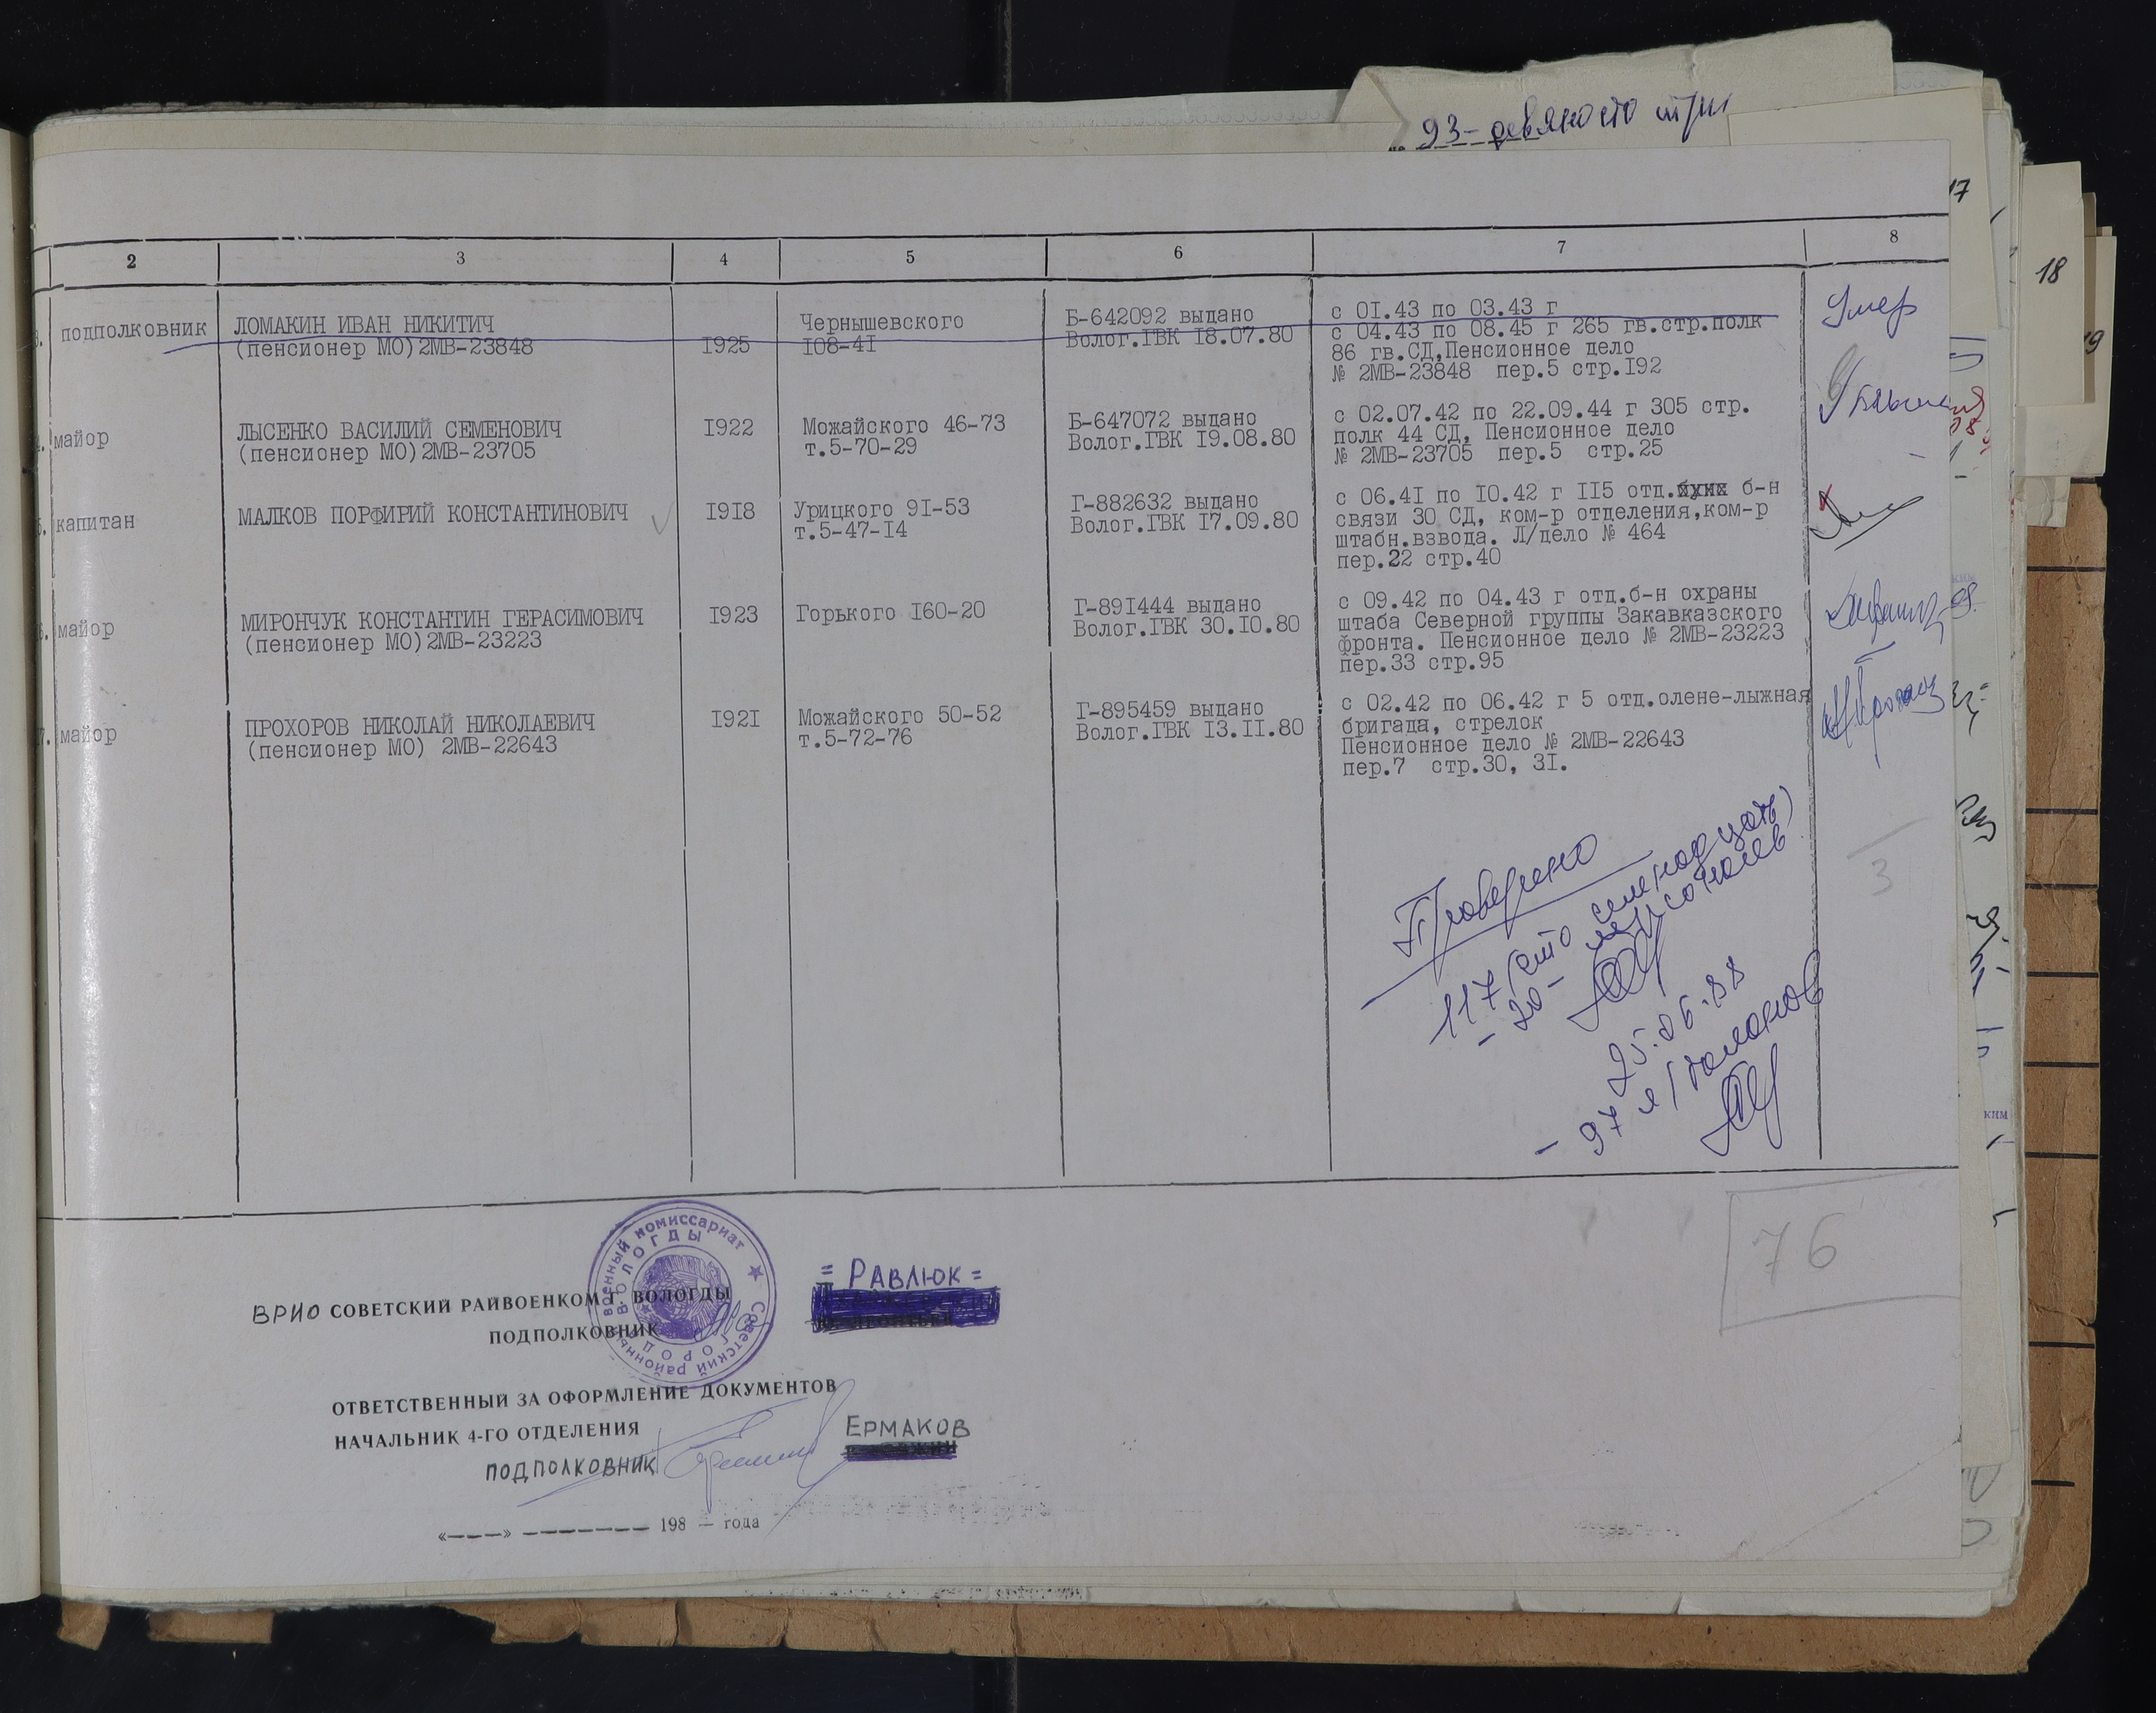 93 - девяносто три
17
18
2 3 4 5 6 7 8
подполковник
ЛОМАКИН ИВАН НИКИТИЧ
(пенсионер МО)2МВ-23848
1925
Чернышевского
108-41
Б-642092 выдано
Волог.ГВК 18.07.80
с 01.43 по 03.43 г
с 04.43 по 08.45 г 265 гв.стр.полк
86 гв.СД,Пенсионное дело
№ 2МВ-23848 пер.5 стр.192
Умер
майор
ЛЫСЕНКО ВАСИЛИЙ СЕМЕНОВИЧ
(пенсионер МО)2МВ-23705
1922
Можайского 46-73
т.5-70-29
Б-647072 выдано
Волог.ГВК 19.08.80
с 02.07.42 по 22.09.44 г 305 стр.
полк 44 СД, Пенсионное дело
№ 2МВ-23705 пер.5 стр.25
капитан
МАЛКОВ ПОРФИРИЙ КОНСТАНТИНОВИЧ
1918
Урицкого 91-53
т.5-47-14
Г-882632 выдано
Волог.ГВК 17.09.80
с 06.41 по 10.42 г 115 отд. б-н
связи 30 СД, ком-р отделения,ком-р
штабн.взвода. Л/дело № 464
пер.22 стр.40
майор
МИРОНЧУК КОНСТАНТИН ГЕРАСИМОВИЧ
(пенсионер МО)2МВ-23223
1923
Горького 160-20
Г-891444 выдано
Волог.ГВК 30.10.80
с 09.42 по 04.43 г отд.б-н охраны
штаба Северной группы Закавказского
фронта. Пенсионное дело № 2МВ-23223
пер.33 стр.95
майор
ПРОХОРОВ НИКОЛАЙ НИКОЛАЕВИЧ
(пенсионер МО) 2МВ-22643
1921
Можайского 50-52
т.5-72-76
Г-895459 выдано
Волог.ГВК 13.11.80
с 02.42 по 06.42 г 5 отд.олене-лыжная
бригада, стрелок
Пенсионное дело № 2МВ-22643
пер.7 стр.30, 31.
Проверено
117 (сто семнадцать)
- 20 -
25.06.88
- 97
3
76
военный комиссариат
ВОЛОГДЫ
Советский районный
ГОРОДА
ВРИО СОВЕТСКИЙ РАЙВОЕНКОМ Г. ВОЛОГДЫ
= РАВЛЮК =
ПОДПОЛКОВНИК
ОТВЕТСТВЕННЫЙ ЗА ОФОРМЛЕНИЕ ДОКУМЕНТОВ
НАЧАЛЬНИК 4-ГО ОТДЕЛЕНИЯ
ЕРМАКОВ
ПОДПОЛКОВНИК
«----» -------- 198 — года